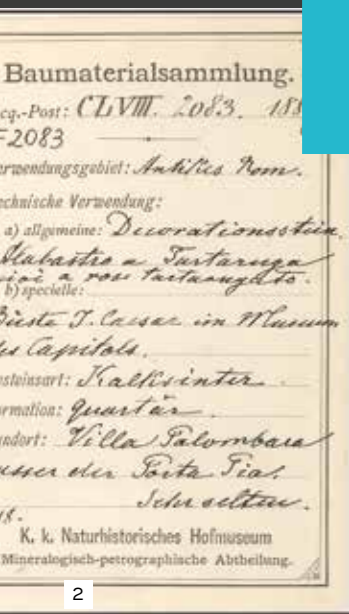 Baumaterialsammlung.
cq.-Post: CLVIII. 2083. 188
F2083
erwendungsgebiet: Antikes Rom.
echnische Verwendung:
a) allgemeine: Decorationsstein.
Alabastro a Tartaruga
cioè a rose tartarugato.
b) specielle:
Büste J. Caesar im Museum
des Capitols.
esteinsart: Kalksinter.
ormation: Quartär.
undort: Villa Palombara
ausser der Porta Pia.
Sehr selten.
18.
K. k. Naturhistorisches Hofmuseum
Mineralogisch-petrographische Abtheilung.
2